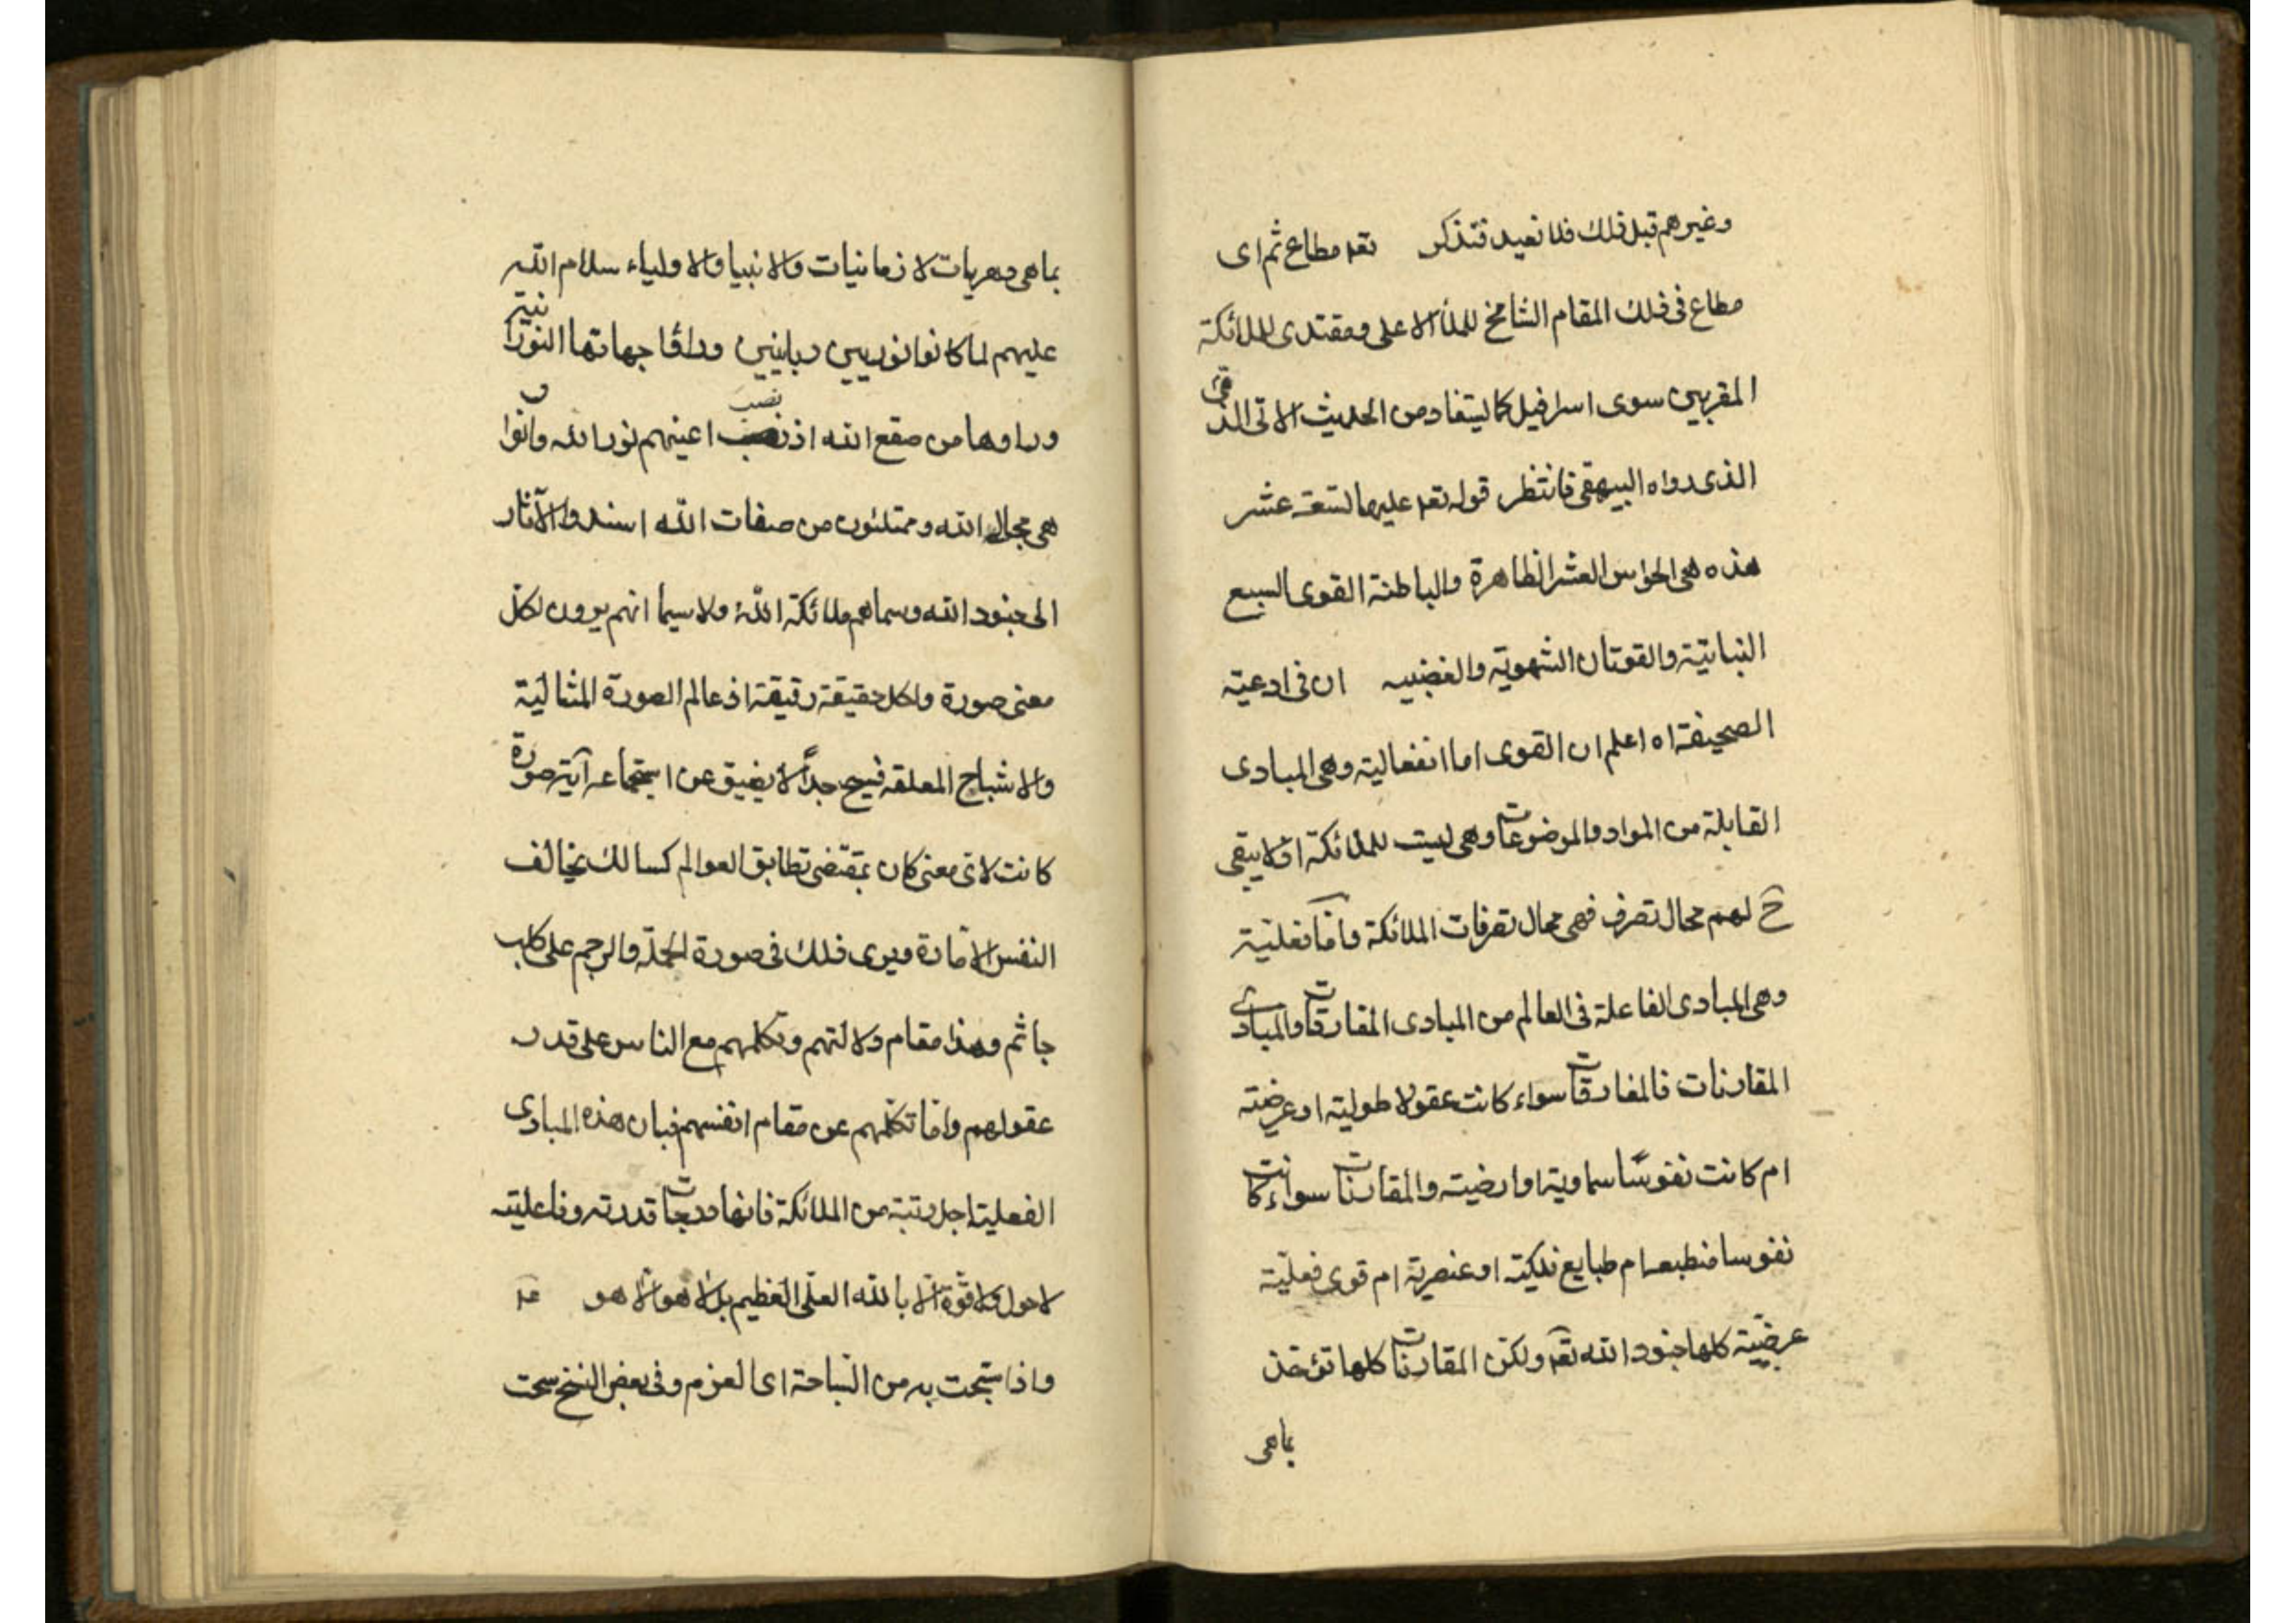 وغيرهم قبل ذلك فلا نعيد فتذكر تعم مطاع ثم اى
مطاع فى ذلك المقام الشامخ للملأ الاعلى ومقتدى للملائكة
المقربين سوى اسرافيل كما يستفاد من الحديث الاتى
الذى رواه البيهقى فانتظر قوله تعم عليها تسعة عشر
هذه هى الحواس العشر الظاهرة والباطنة القوى السبع
النباتية والقوتان الشهوية والغضبيه ان فى ادعية
الصحيفة اه اعلم ان القوى اما انفعالية وهى المبادى
القابلة من المواد والموضوعات وهى ليست للملائكة اذ لا يبقى
ح لهم محال تصرف فهى محال تصرفات الملائكة وامّا فعليّة
وهى المبادى الفاعلة فى العالم من المبادى المفارقات والمبادى
المقارنات فالمفارقات سواء كانت عقولا طولية او عرضية
ام كانت نفوسًا سماوية او ارضية والمقارنات سواء كانت
نفوسا منطبعه ام طبايع فلكية او عنصرية ام قوى فعليّة
عرضيّة كلها جنود الله تعم ولكن المقارنات كلها تؤخذ
بماهى
بماهى دهريات لا زمانيات والانبيا والاولياء سلام الله
عليهم لما كانوا نوريين ربانيين وراوا جهاتها النورانية
وراوها من صقع الله اذ نصب اعينهم نور الله وانوا
هى مجال الله وممتلئون من صفات الله اسندوا الآثار
الى جنود الله وسماهم ملائكة الله ولا سيما انهم يرون لكل
معنى صورة ولكل حقيقة رقيقة اذ عالم الصورة المثالية
والاشباح المعلقه فسيح جدًّا لا يضيق عن استجماعه آية صورة
كانت لاى معنى كان بمقتضى تطابق العوالم كسالك يخالف
النفس الامّارة ويرى ذلك فى صورة الحملة والرجم على كلب
جاثم وهذا مقام ولايتهم وتكلمهم مع الناس على قدر
عقولهم وامّا تكلّمهم عن مقام انفسهم فبان هذه المبادى
الفعلية اجل رتبة من الملائكة فانها درجات قدرته وفاعليته
لا حول ولا قوة الّا بالله العلى العظيم بل لا هو الّا هو
واذا سبحت به من السّباحة اى العزم وفى بعض النسخ سحت